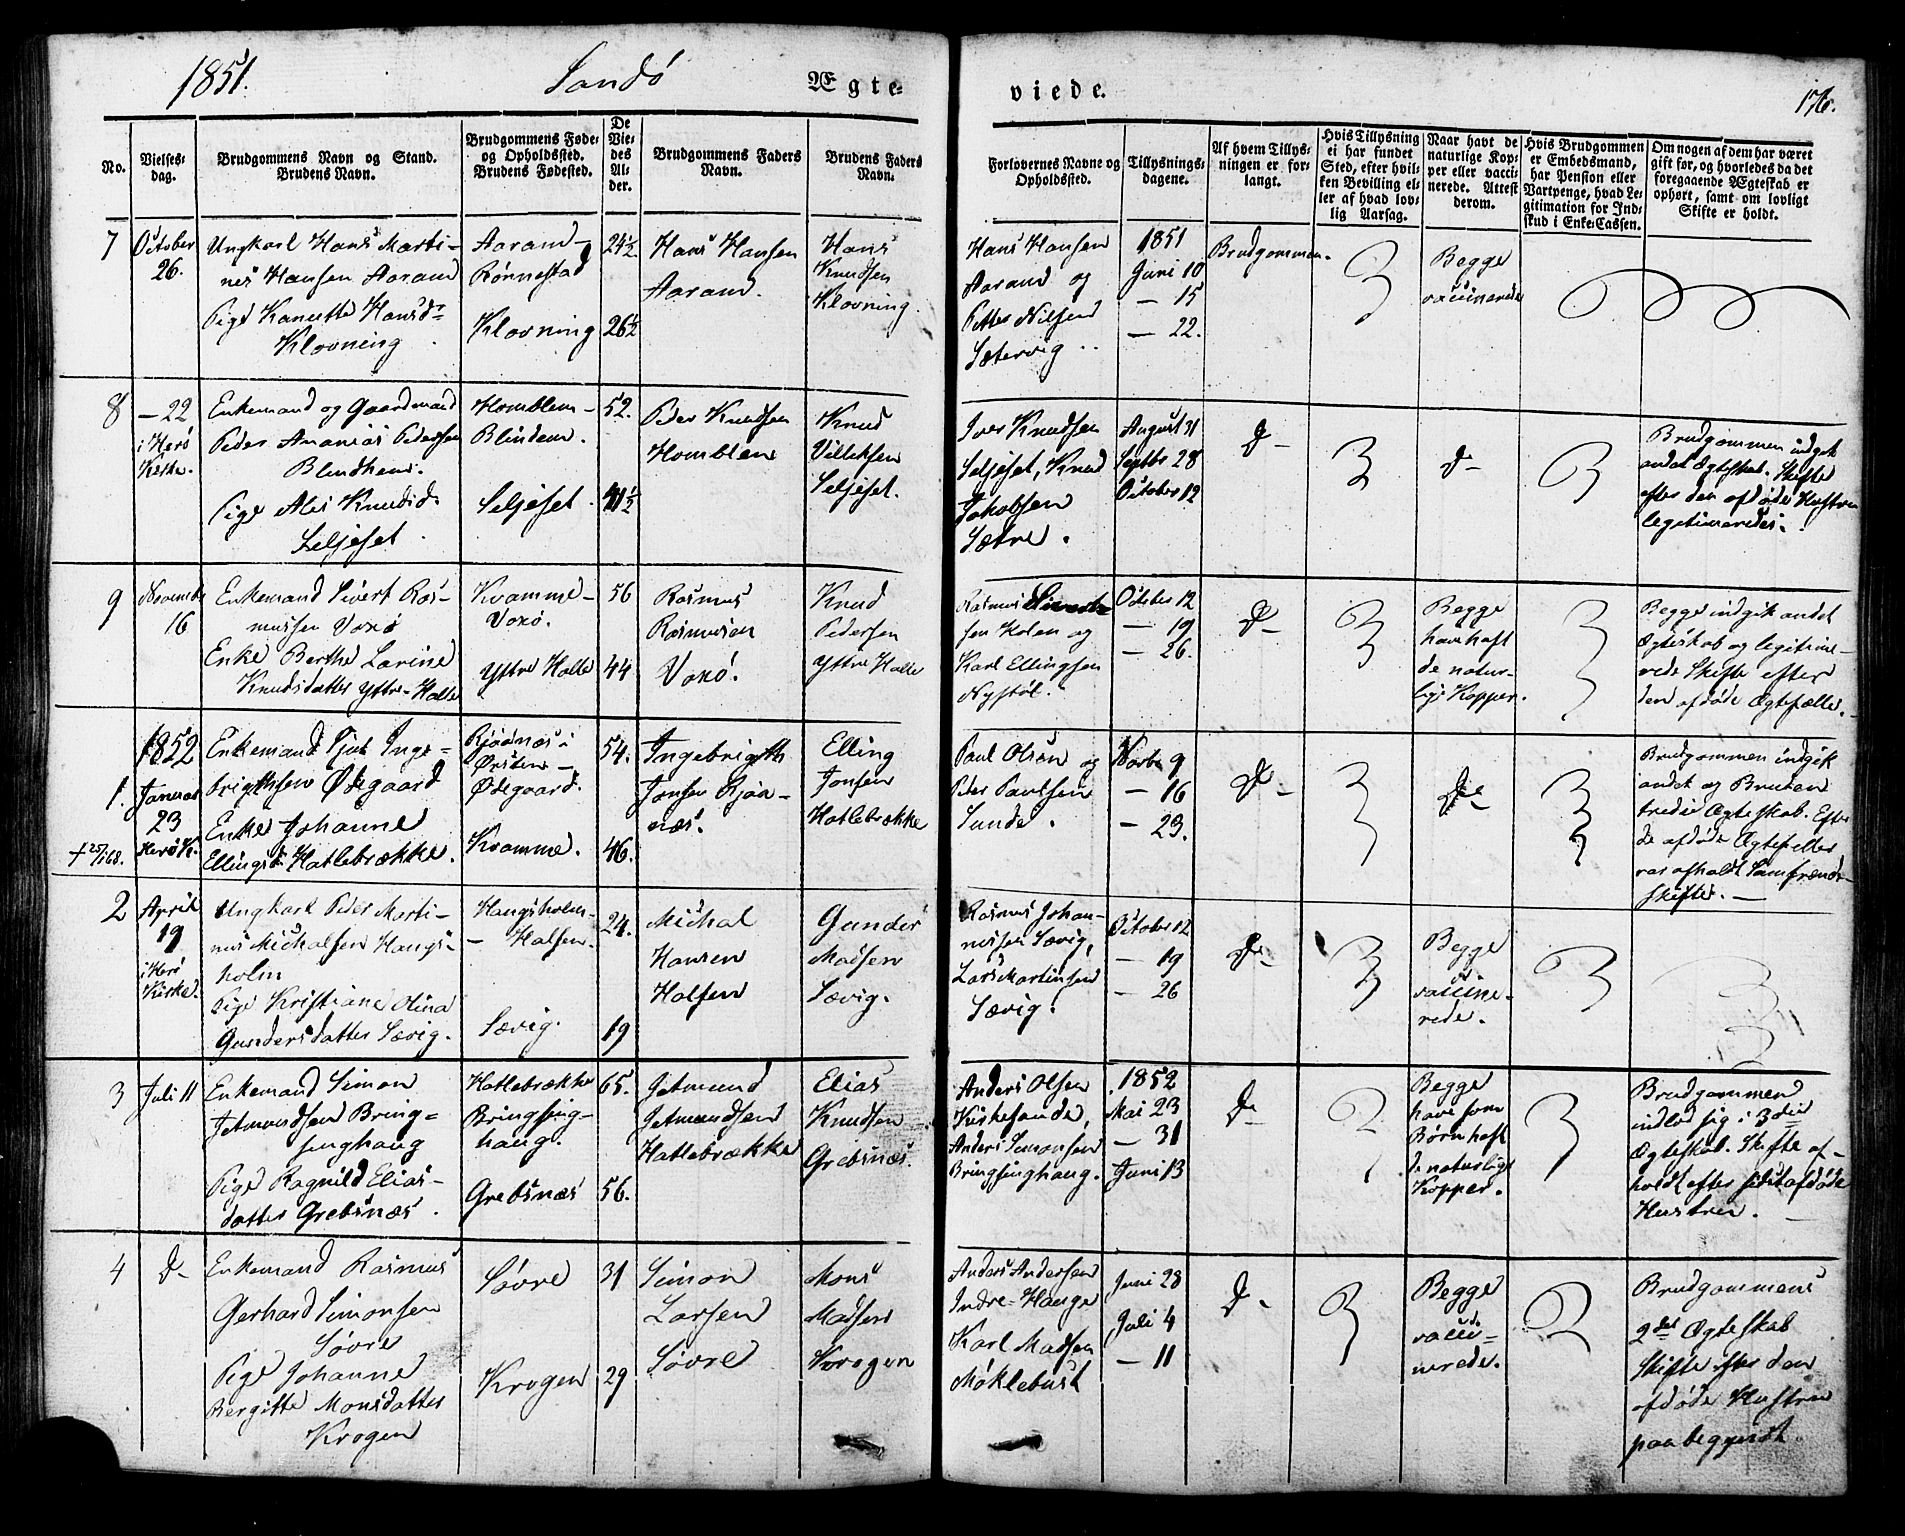 1851.
Sandö
Ægte-
viede.
176.
No.
Vielses-
dag.
Brudgommens Navn og Stand.
Brudens Navn.
Brudgommens Føde-
og Opholdssted.
Brudens Fødested.
De
Vie-
des
Al-
der.
Brudgommens Faders
Navn.
Brudens Faders
Navn.
Forlovernes Navne og
Opholdssted.
Tillysnings-
dagene.
Af hvem Tillys-
ningen er for-
langt.
Hvis Tillysning
ei har fundet
Sted, efter hvil-
ken Bevilling el-
ler af hvad lov-
lig Aarsag.
Naar havt de
naturlige Kop-
per eller vacci-
nerede. Attest
derom.
Hvis Brudgommen
er Embedsmand,
har Pension eller
Vartpenge, hvad Le-
gitimation for Ind-
skud i Enke-Cassen.
Om nogen af dem har været
gift før, og hvorledes da det
foregaaende Ægteskab er
ophørt, samt om lovligt
Skifte er holdt.
7
October
26.
Ungkarl Hans Marti-
nes Hansen Aarand
Pige Hansd-
Klovning
Aarand-
Rönnestad
Klovning
24½
26½
Hans Hansen
Aarand.
Hans
Knudsen
Klovning.
Hans Hansen
Aarand og
Petter Nilsen
Sætervig
1851
Juni 10
— 15
— 22.
Brudgommen.
Begge
vaccinerede
8
— 22
i Herö
Kirke.
Enkemand og Gaardmand
Peder Ananias Pedersen
Blindhem.
Pige Ales Knudsd.
Seljeset
Homblem-
Blindem.
Seljeset
52.
41½
Peder Knudsen
Homblem
Knud
Villeksen
Seljeset.
Iver Knudsen
Seljeset, Knud
Jakobsen
Sætre.
August 31
Septbr 28
October 12
D-
D-
Brudgommen indgik
andet Ægteskab. Skifte
efter den afdöde Hustru
legitimeredes.
9
November
16
Enkemand Sivert Ras-
mussen Voxö
Enke Berthe Lovine
Knudsdatter Yttre-Holle
Kvamme-
Voxö.
Yttre Holle
56
44
Rasmus
Rasmusen
Voxö.
Knud
Pedersen
Yttre Holle
Rasmus Sivert-
sen Kolen og
Karl Ellingsen
Nystöl.
October 12
— 19
— 26.
D-
Begge
have haft
de natur-
lige Kopper.
Begge indgik andet
Ægteskab og legitime-
rede Skifte efter
den afdöde Ægtefælle.
1852
1.
Januar
23
Herö K.
† 25/1 68.
Enkemand Inge-
brigthsen Ödegaard
Enke Johanne
Ellingsd. Hatlebrække.
i
Örsten-
Ödegaard.
Kvamme.
54.
46.
Ingebrigth
Jonsen
næs.
Elling
Jonsen
Hatlebrække
Paul Olsen og
Peder Paulsen
Sunde.
Novbr 9
— 16
— 23.
D-
Do-
Brudgommen indgik
andet og Bruden
tredie Ægteskab. Efter
de afdöde Ægtefeller
var afholdt Samfrænde-
skifter.
2
April
19
i Herö
Kirke.
Ungkarl Peder Marti-
nus Michalsen Haugs-
holm
Pige Kristiane Olina
Gundersdatter Sævig.
Haugsholm-
— Halsen.
Sævig.
24.
19
Michal
Hansen
Halsen
Gunder
Madsen
Sævig.
Rasmus Johan-
nessen Sævig,
Lars Martinsen
Sævig.
October 12
— 19
— 26
D-
Begge
vaccine-
rede.
3
Juli 11
Enkemand Simon
Jetmundsen Bring-
singhaug
Pige Ragnild Elias-
datter Grebsnæs.
Hatlebrække
Bringsing-
haug.
Grebsnæs
65.
56.
Jetmund
Jetmundsen
Hatlebrække
Elias
Knudsen
Grebsnæs.
Anders Olsen
Kirkesunde,
Anders Simonsen
Bringsinghaug.
1852
Mai 23
— 31
Juni 13
D-
Begge
have som
Børn haft
de naturlige
Kopper.
Brudgommen
indlod sig i 3die
Ægteskab. Skifte af-
holdt efter sidst afdöde
Hustru.
4
D-
Enkemand Rasmus
Gerhard Simonsen
Sövre
Pige Johanne
Bergitte Monsdatter
Krogen
Sövre
Krogen
31
29
Simon
Larsen
Sövre
Mons
Madsen
Krogen
Anders Andersen
Indre-Hauge
Karl Madsen
Möklebust
Juni 28
Juli 4
— 11
D-
Begge
vacci-
nerede.
Brudgommens
2det Ægteskab
Skifte efter den
afdöde Hustru
paabegyndt.